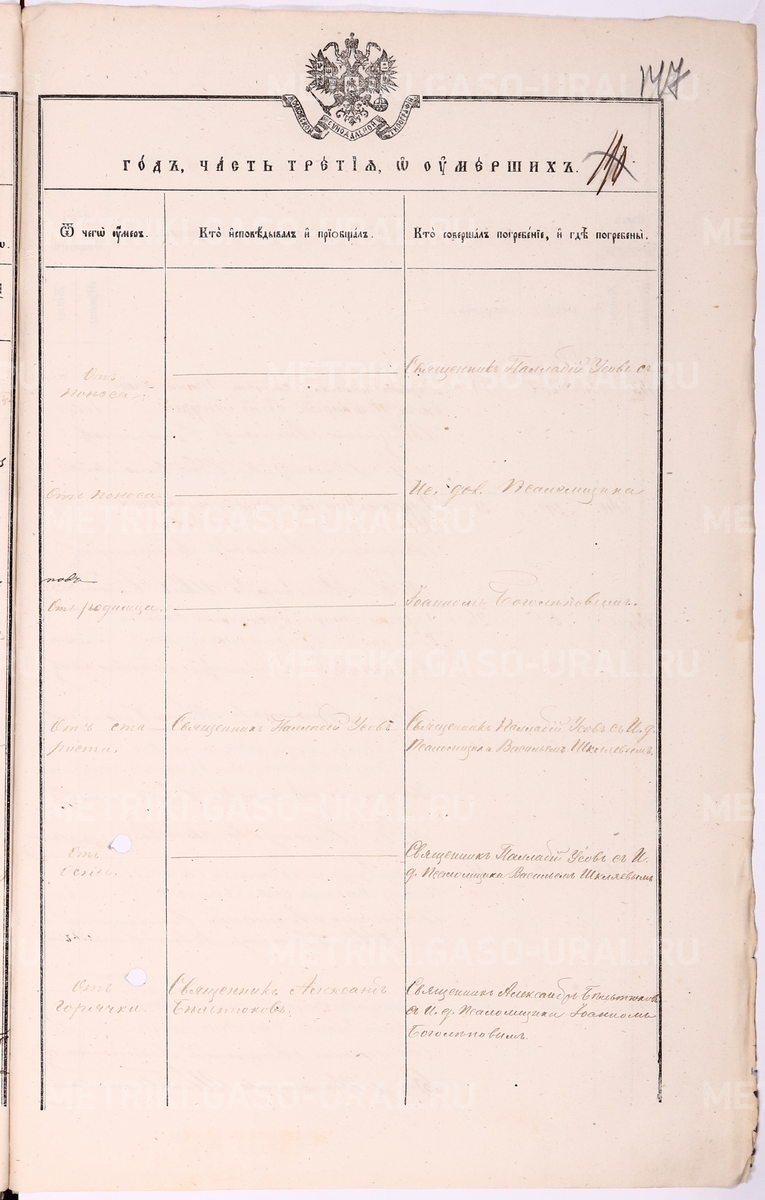 147
МОСКОВСКОЙ СѴНОДАЛЬНОЙ ТИПОГРАФІИ
ГО́ДЪ, ЧА́СТЬ ТРЕ́ТІЯ, Ѡ ОУМЕ́РШИХЪ.
Ѿ чегѡ̀ оу́меръ.
Кто̀ и҆сповѣ́дывалъ и҆ прїобща́лъ.
Кто̀ соверша́лъ погребе́нїе, и҆ гдѣ̀ погребены̀.
Отъ
поноса.
Священникъ Палладій Усовъ съ
Отъ поноса.
Ис. дол. Псаломщика
Отъ родимца.
Іоанномъ Боголѣповымъ.
Отъ ста
рости.
Священникъ Палладій Усовъ
Священникъ Палладій Усовъ съ И. д.
Псаломщика Васильемъ Шкляевымъ.
Отъ
Священникъ Палладій Усовъ съ И.
д. Псаломщика Васильемъ Шкляевымъ
Отъ
горячки.
Священникъ Александръ
Священникъ Александръ
съ И. д. Псаломщика Іоанномъ
Боголѣповымъ.
METRIKI.GASO-URAL.RU